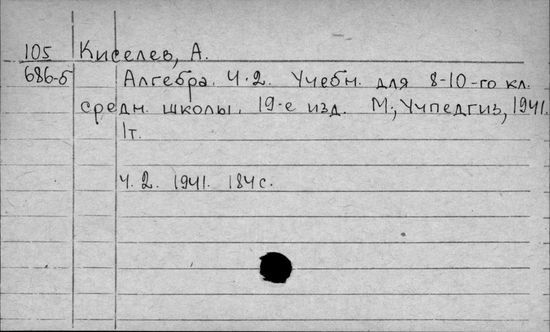 105 Киселев, А.
686-5 Алгебра. Ч.2. Учебн. для 8-10-го кл.
средн. школы. 19-е изд. М., Учпедгиз, 1941.
1т.
Ч. 2. 1941. 184 с.